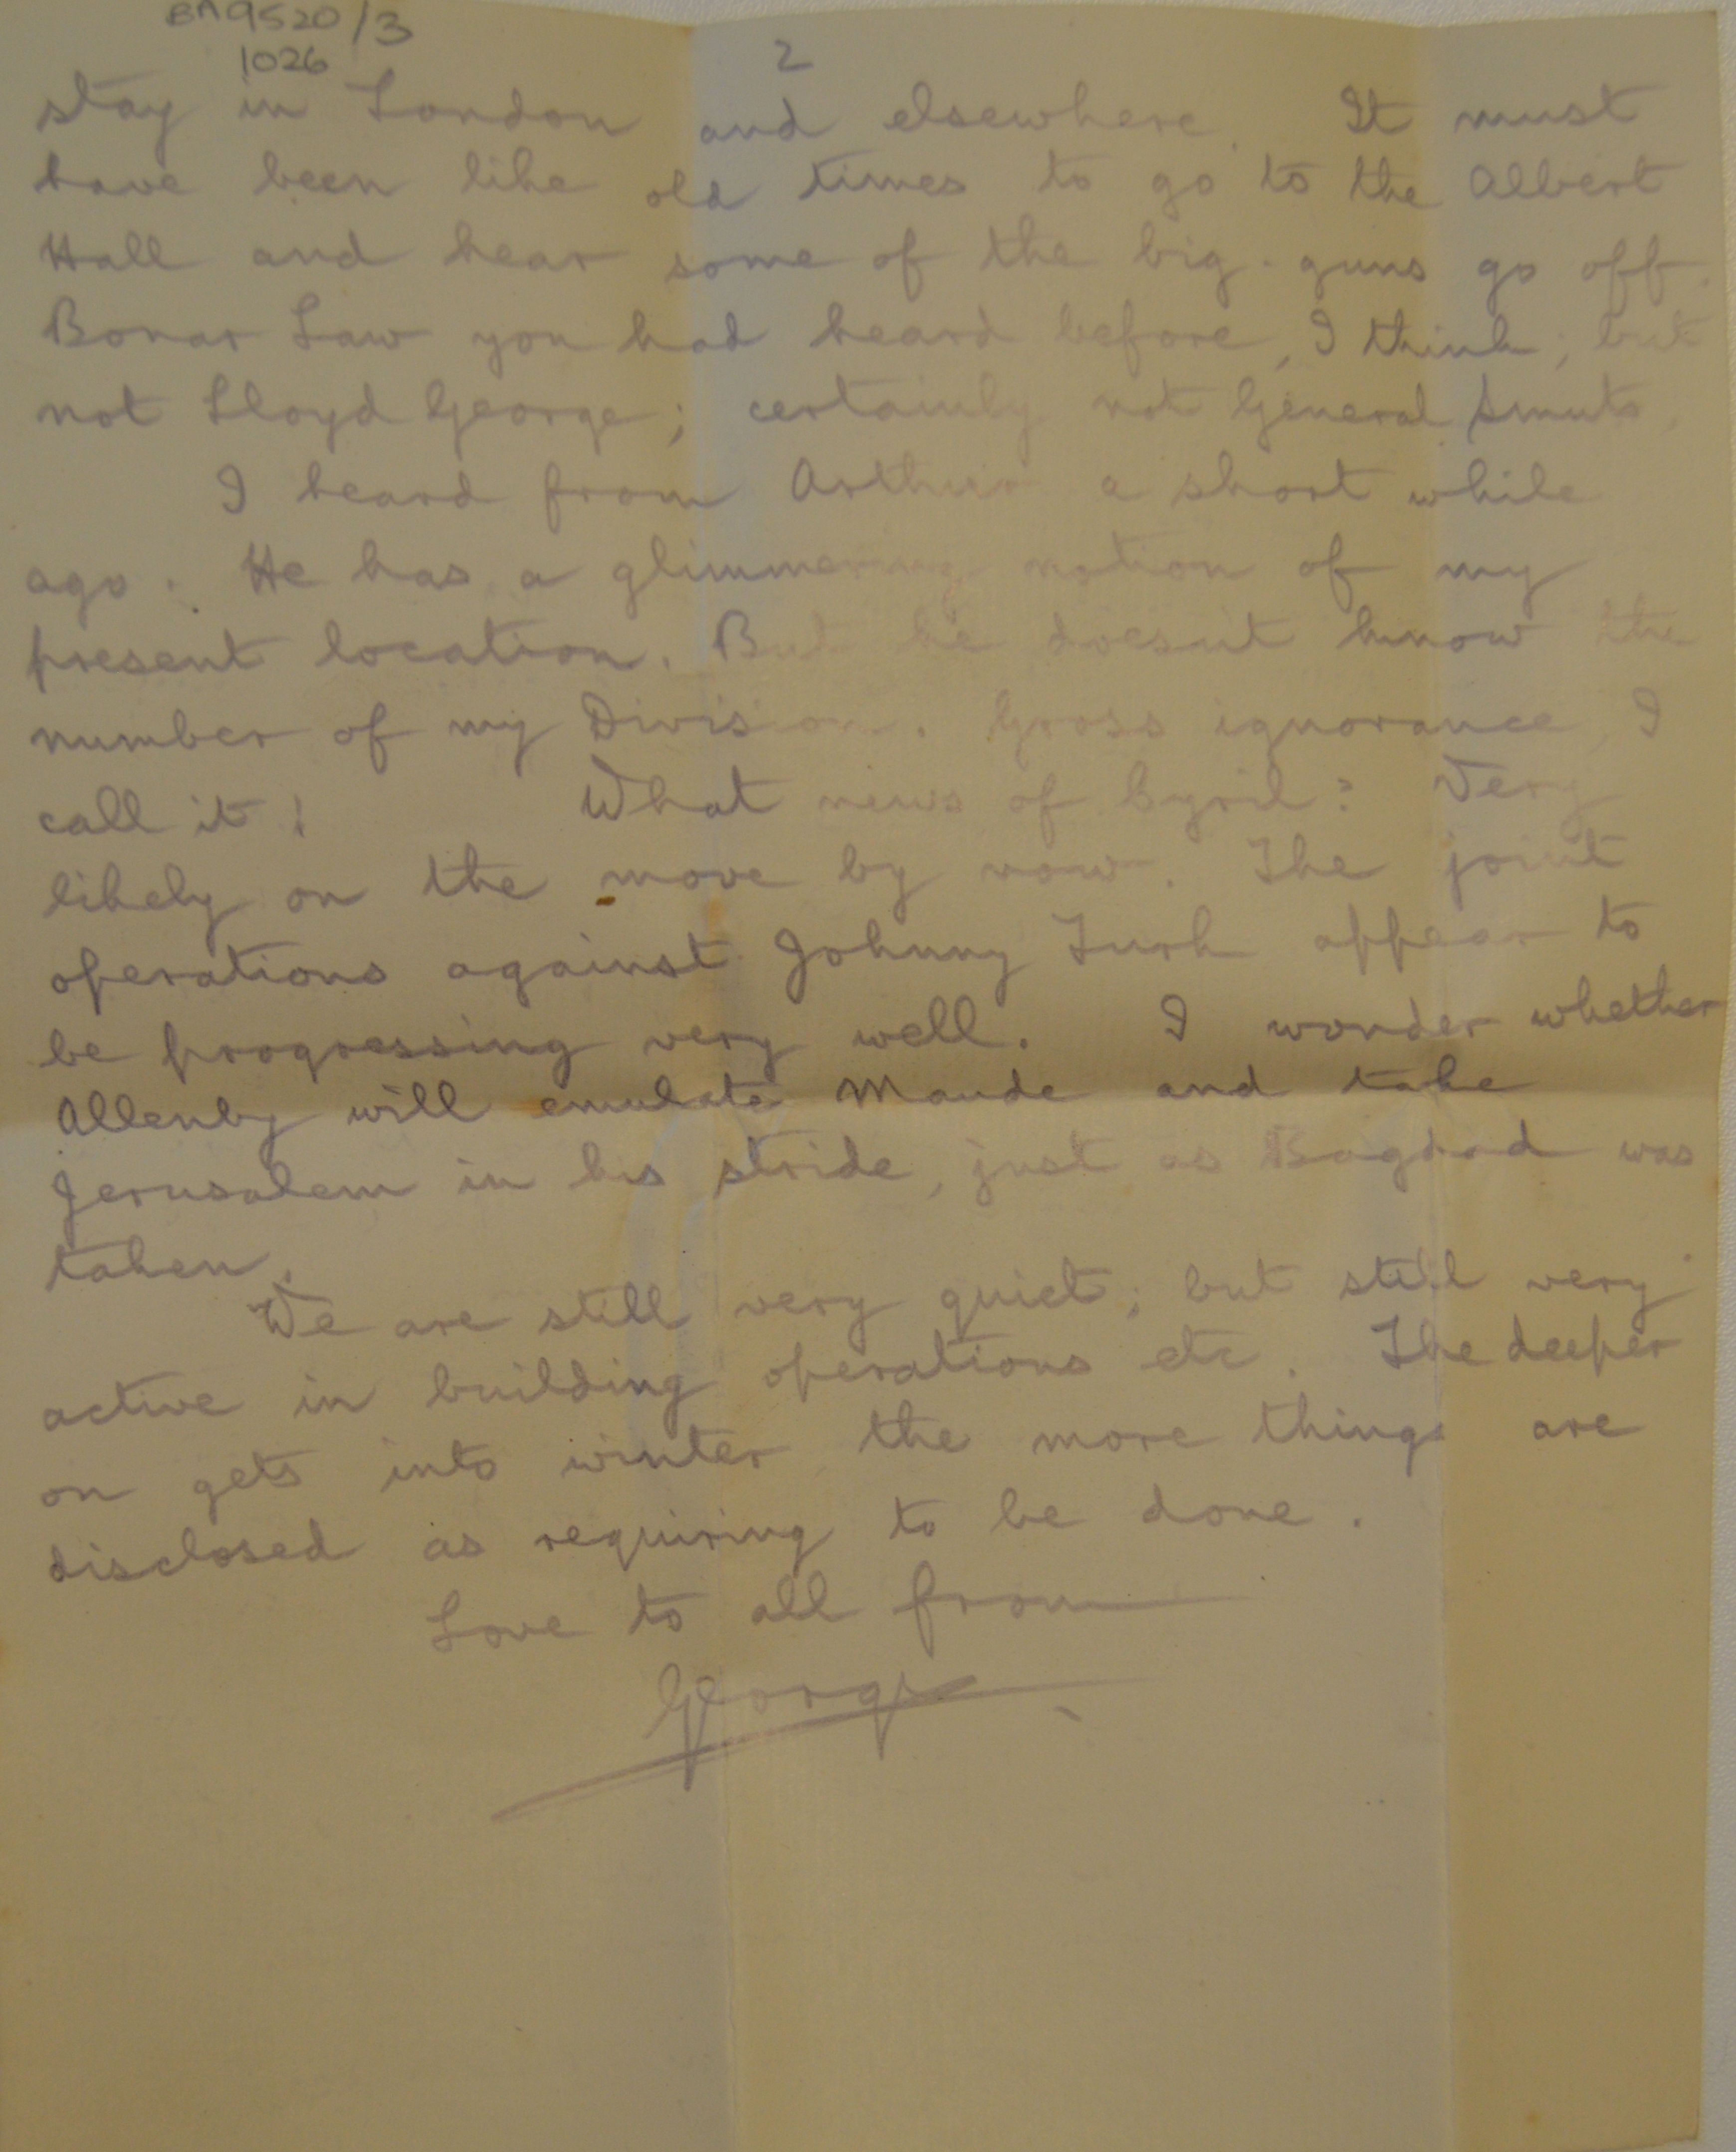 BA9520/3
1026
2
stay in London and elsewhere. It must
have been like old times to go to the Albert
Hall and hear some of the big guns go off.
Bonar Law you had heard before, I think; but
not Lloyd George; certainly not General Smuts.
I heard from Arthur a short while
ago. He has a glimmering notion of my
present location. But he doesn't know the
number of my Division. Gross ignorance, I
call it! What news of Cyril? Very
likely on the move by now. The joint
operations against Johnny Turk appear to
be progressing very well. I wonder whether
Allenby will emulate Maude and take
Jerusalem in his stride, just as Bagdad was
taken.
We are still very quiet; but still very
active in building operations etc. The deeper
on gets into winter the more things are
disclosed as requiring to be done.
Love to all from
George